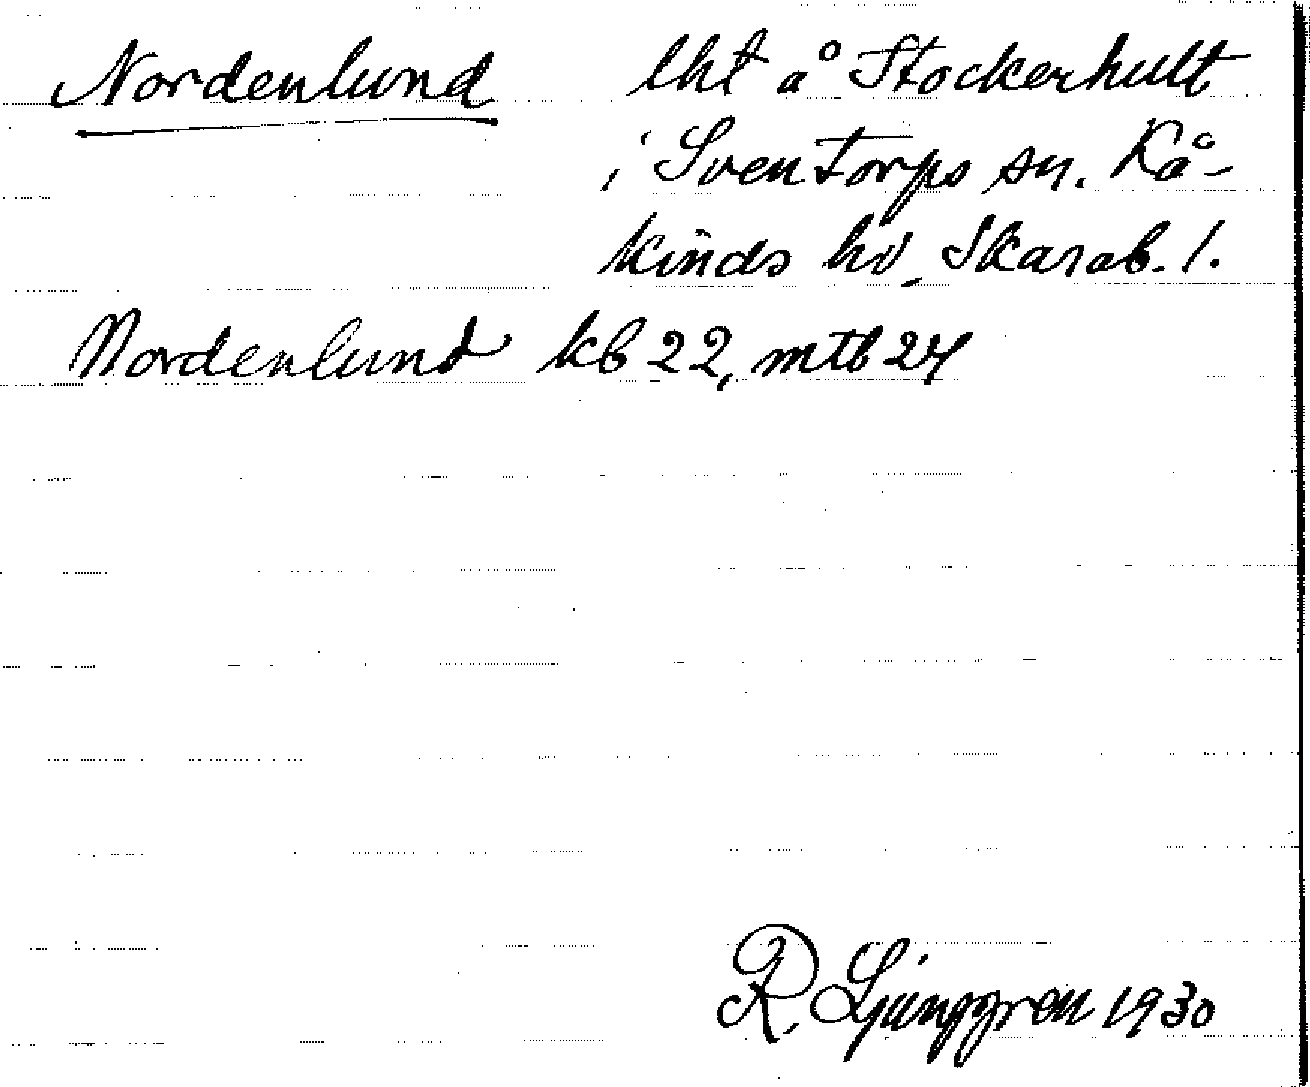 Nordenlund lht å Stockerhult
i Sventorps sn. Kå-
kinds hd, Skarab. l.
Nordenlund kb 22, mtb 24
R. Ljunggren 1930